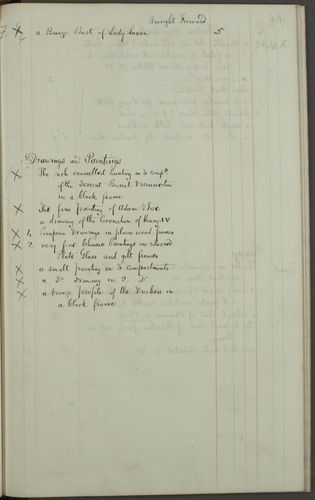 Brought Forward
a Bronze Bust of Lady 5
Drawings and Paintings
X The rich enamelled Painting in 3 comp.ts
of the Descent Burial
in a black frame
X The fine painting of Adam & Eve
X a drawing of the Coronation of Henry IV
X 4 European Drawings in plain wood frames
X 2 very fine Chinese Paintings in
Plate Glass and gilt frames
X a small painting in 3 compartments
X a Do Drawing in 2 Do
X a bronze profile of the Duchess in
a black frame